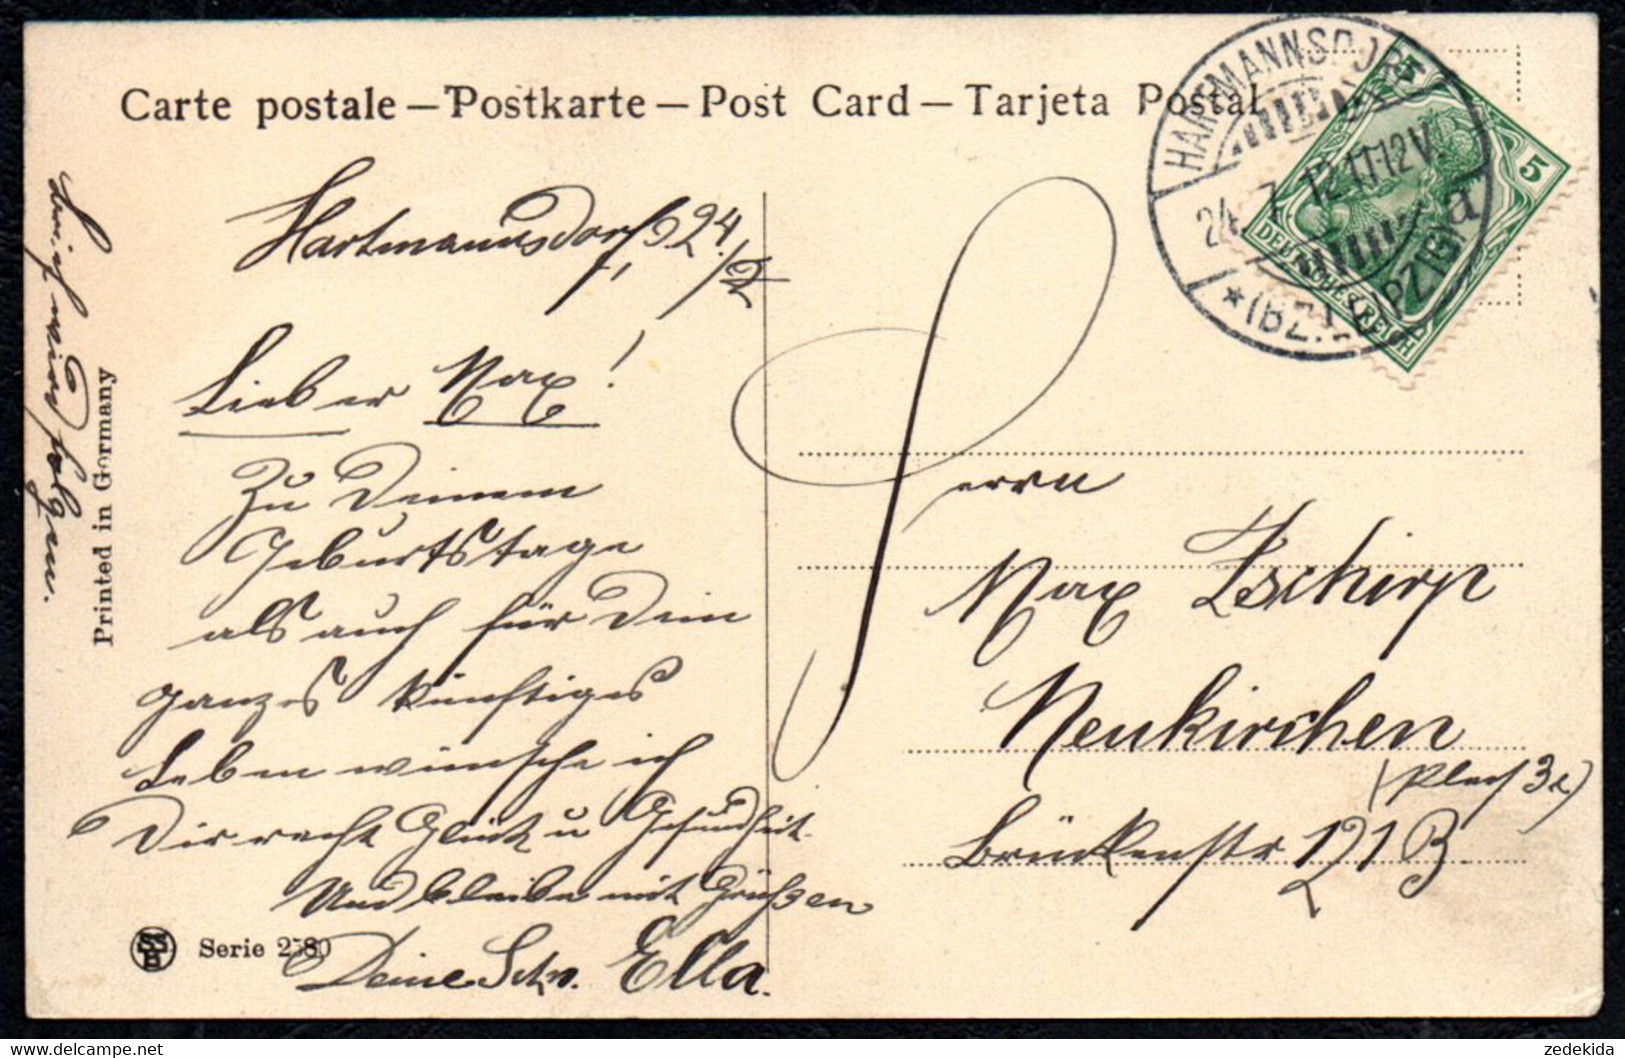 Carte postale — Postkarte — Post Card — Tarjeta Postal
HARTMANNSDORF
24. 7. 12. 11-12 V.
a
* (BZ. LEIPZIG)
5
5
DEUTSCHES REICH
Hartmannsdorf, 24./7.
Lieber Max!
Zu Deinem
Geburtstage
als auch für Dein
ganzes künftiges
Leben wünsche ich
Dir recht Glück u Gesundheit.
Und bleibe mit Grüßen
Deine Schw. Ella.
wird folgen.
Printed in Germany
SSB
Serie 2580
Herrn
Max Zschirp
Neukirchen
Brückenstr 121 B.
zedekida